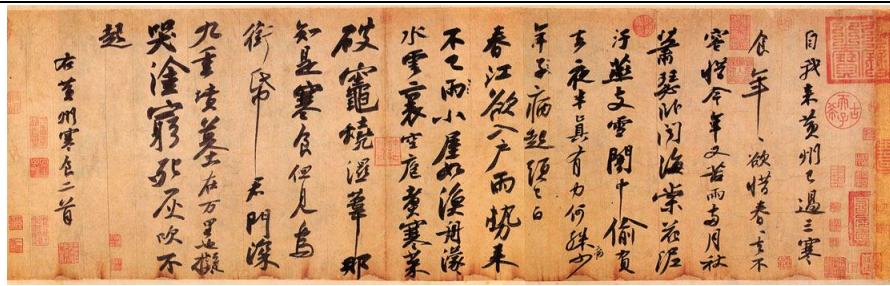 自我来黄州已過三寒
食年〻欲惜春〻去不
容惜今年又苦雨兩月秋
蕭瑟卧聞海棠花泥
汙燕支雪闇中偷負
去夜半真有力何殊少病
年子病起頭已白
春江欲入戶雨勢来
不已雨小屋如漁舟濛〻
水雲裏空庖煮寒菜
破竈燒濕葦那
知是寒食但見烏
銜帋君門深
九重墳墓在万里也擬
哭塗窮死灰吹不
起
右黄州寒食二首